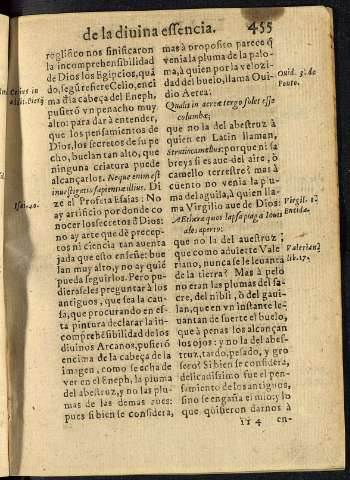 de la diuina essencia. 455
reglifico nos sinificaron
la incomprehensibilidad
de Dios los Egipcios, quã
do, segũ refiere Celio, enci
ma dla cabeça del Eneph,
pusierõ vn penacho muy
alto: para dar à entender,
que los pensamientos de
Dios, los secretos de su pe
cho, buelan tan alto, que
ninguna criatura puede
alcançarlos. Neque enim est
inuestigatio sapientiæ illius. Di
ze el Profeta Esaias: No
ay artificio por donde co
nocer los secretos ð Dios:
no ay arte que dè precep-
tos ni ciencia tan auenta
jada que esto enseñe: bue
lan muy alto, y no ay quiẽ
pueda seguirlos. Pero pu-
dierasseles preguntar à los
antiguos, que sea la cau-
sa, que procurando en es-
ta pintura declarar la in-
comprehẽsibilidad de los
diuinos Arcanos, pusierõ
encima de la cabeça de la
imagen, como se echa de
ver en el Eneph, la pluma
del abestruz, y no las plu-
mas de las demas aues:
pues si bien se considera,
Celius in
addit. Pierij
Isai. 40.
mas à proposito parece q̃
venia la pluma de la palo-
ma, à quien por la velozi-
dad del buelo, llama Oui-
dio Aerea:
Qualia in aerea tergo solet esse
columbæ;
que no la del abestruz à
quien en Latin llaman,
Strutiocamelus: porque ni sa
breys si es aue del aire, ò
camello terrestre? mas à
cuento no venia la plu-
ma del aguila, à quien lla-
ma Virgilio aue de Dios:
Aetherea quos lapsa plaga Iouis
ales aperto:
que no la del auestruz;
que como aduierte Vale
riano, nunca se le leuanta
de la tierra? Mas à pelo
no eran las plumas del sa-
cre, del nibli, ò del gaui-
lan, que en vn instante le-
uantan de suerte el buelo,
que à penas los alcançan
los ojos: y no la del abes-
truz, tardo, pesado, y gro
sero? Si bien se considera,
delicadissimo fue el pen-
samiento de los antiguos,
sino se engaña el mio: y lo
que quisieron darnos à
Ouid. 3. de
Ponto.
Virgil. 1.
Eneida.
Valerian.
lib. 17.
en-